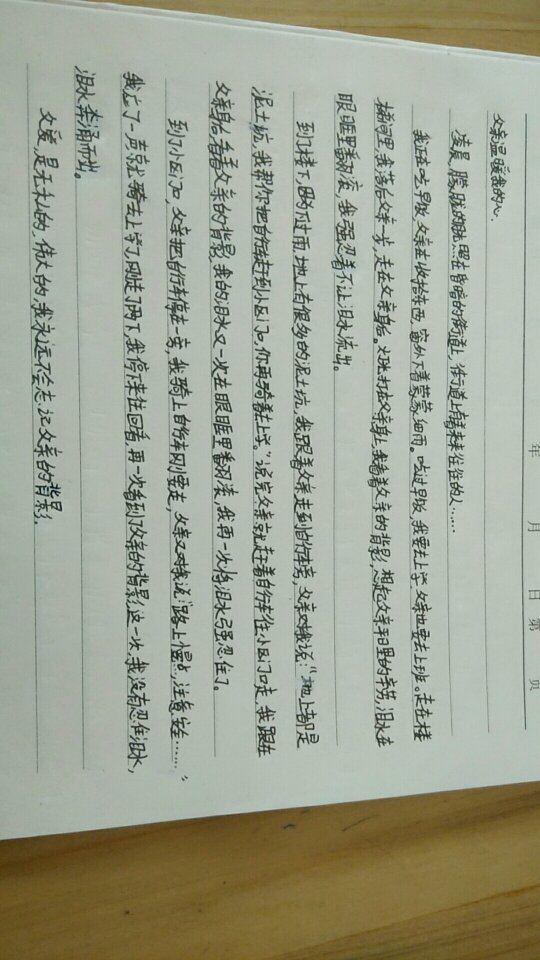 年 月 日 第 页
父亲温暖我的心.
凌晨,朦胧的晨光照在昏暗的街道上,街道上有着来来往往的人……
我正在吃早饭,父亲在收拾东西,窗外下着蒙蒙细雨。吃过早饭,我要去上学,父亲也要去上班。走在楼
梯间里,我落在父亲一步,走在父亲身后。灯光打在父亲身上,我看着父亲的背影,想起父亲平日里的辛劳,泪水在
眼眶里翻滚,我强忍着不让泪水流出。
到了楼下,因为下过雨,地上有很多的泥土坑,我跟着父亲走到自行车旁,父亲对我说:“地上都是
泥土坑,我帮你把自行车赶到小区门口,你再骑着去上学。”说完父亲就赶着自行车往小区门口走,我跟在
父亲身后,看着父亲的背影,我的泪水又一次在眼眶里翻滚,我再一次将泪水强忍住了。
到了小区门口,父亲把自行车停在一旁,我骑上自行车刚要走,父亲又对我说:“路上慢点,注意安全……”
我应了一声,就骑去上学了,刚走了两下,我停下来往回看,再一次看到了父亲的背影,这一次,我没有忍住泪水,
泪水奔涌而出。
父爱,是无私的,伟大的,我永远不会忘记父亲的背影。